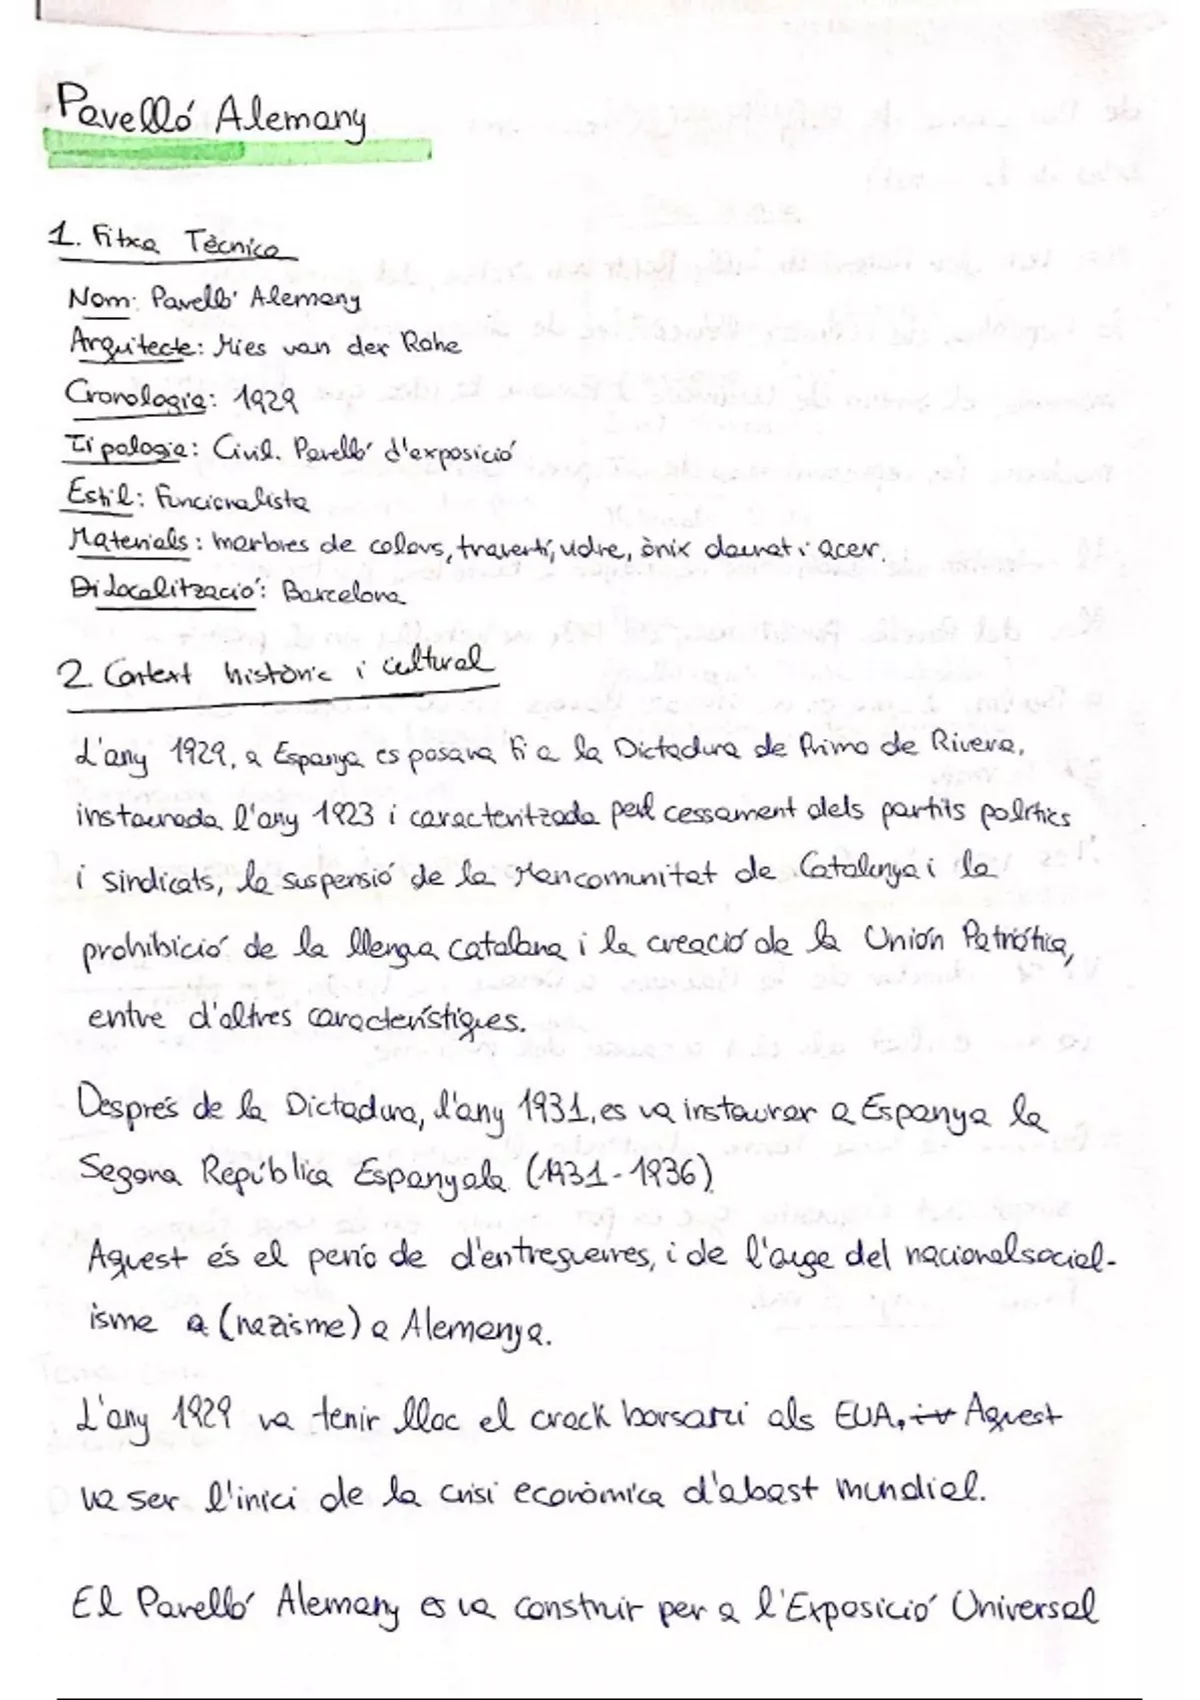 Pavelló Alemany
1. Fitxa Tècnica
Nom: Pavelló Alemany
Arquitecte: Mies van der Rohe
Cronologia: 1929
Tipologia: Civil. Pavelló d'exposició
Estil: Funcionalista
Materials: marbres de colors, travertí, vidre, ònix daurat i acer
Localització: Barcelona
2. Context històric i cultural
L'any 1929, a Espanya es posava fi a la Dictadura de Primo de Rivera,
instaurada l'any 1923 i caracteritzada pel cessament dels partits polítics
i sindicats, la suspensió de la Mancomunitat de Catalunya i la
prohibició de la llengua catalana i la creació de la Unión Patriótica,
entre d'altres característiques.
Després de la Dictadura, l'any 1931, es va instaurar a Espanya la
Segona República Espanyola (1931-1936)
Aquest és el perío de d'entreguerres, i de l'auge del nacionalsocial-
isme a (nazisme) a Alemanya.
L'any 1929 va tenir lloc el crack borsari als EUA. Aquest
va ser l'inici de la crisi econòmica d'abast mundial.
El Pavelló Alemany es va construir per a l'Exposició Universal